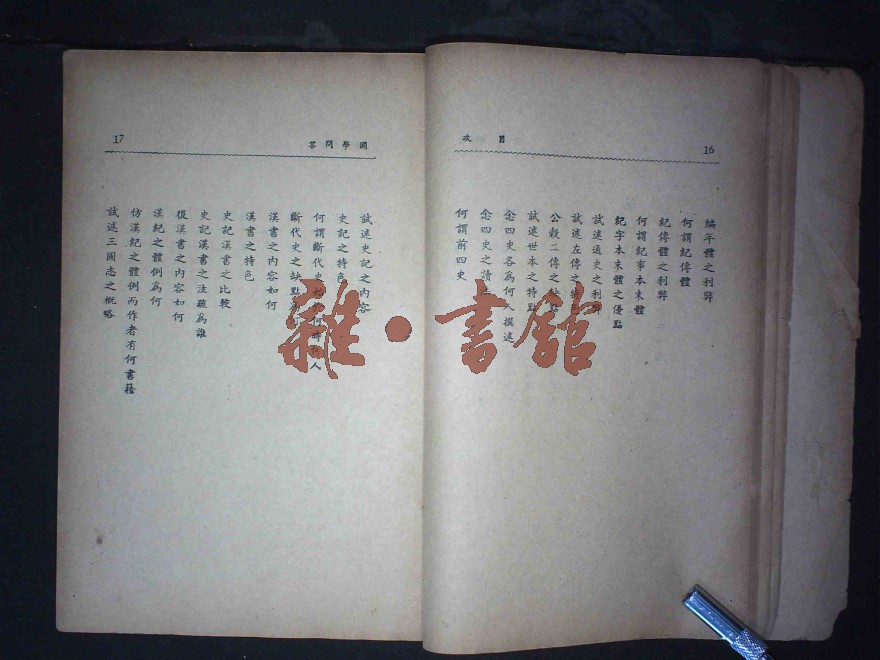 16
目次
編年體之利弊
何謂紀傳體
紀傳體之利弊
何謂紀事本末體
紀字本末體之優點
試述通史之利弊
試述左傳之特
公穀二傳之缺點
試述世本之特點
念四史各為何人撰述
念四史之讀
何謂前四史
國學問答
17
試述史記之內容
史記之特色
何謂斷代史 何時 人
斷代史之缺點
漢書之內容如何
漢書之特色
史記漢書之比較
史記漢書之注疏為誰
後漢書之內容如何
漢紀之體例為何
仿漢紀之體例而作者有何書籍
試述三國志之概略
雜·書館